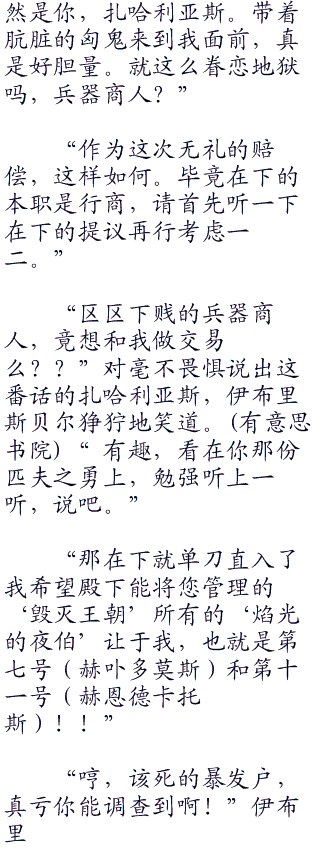 然是你，扎哈利亚斯。带着
肮脏的匈鬼来到我面前，真
是好胆量。就这么眷恋地狱
吗，兵器商人？”
“作为这次无礼的赔
偿，这样如何。毕竟在下的
本职是行商，请首先听一下
在下的提议再行考虑一
二。”
“区区下贱的兵器商
人，竟想和我做交易
么？？”对毫不畏惧说出这
番话的扎哈利亚斯，伊布里
斯贝尔狰狞地笑道。(有意思
书院)“有趣，看在你那份
匹夫之勇上，勉强听上一
听，说吧。”
“那在下就单刀直入了
我希望殿下能将您管理的
‘毁灭王朝’所有的‘焰光
的夜伯’让于我，也就是第
七号（赫卟多莫斯）和第十
一号（赫恩德卡托
斯）！！”
“哼，该死的暴发户，
真亏你能调查到啊！”伊布
里